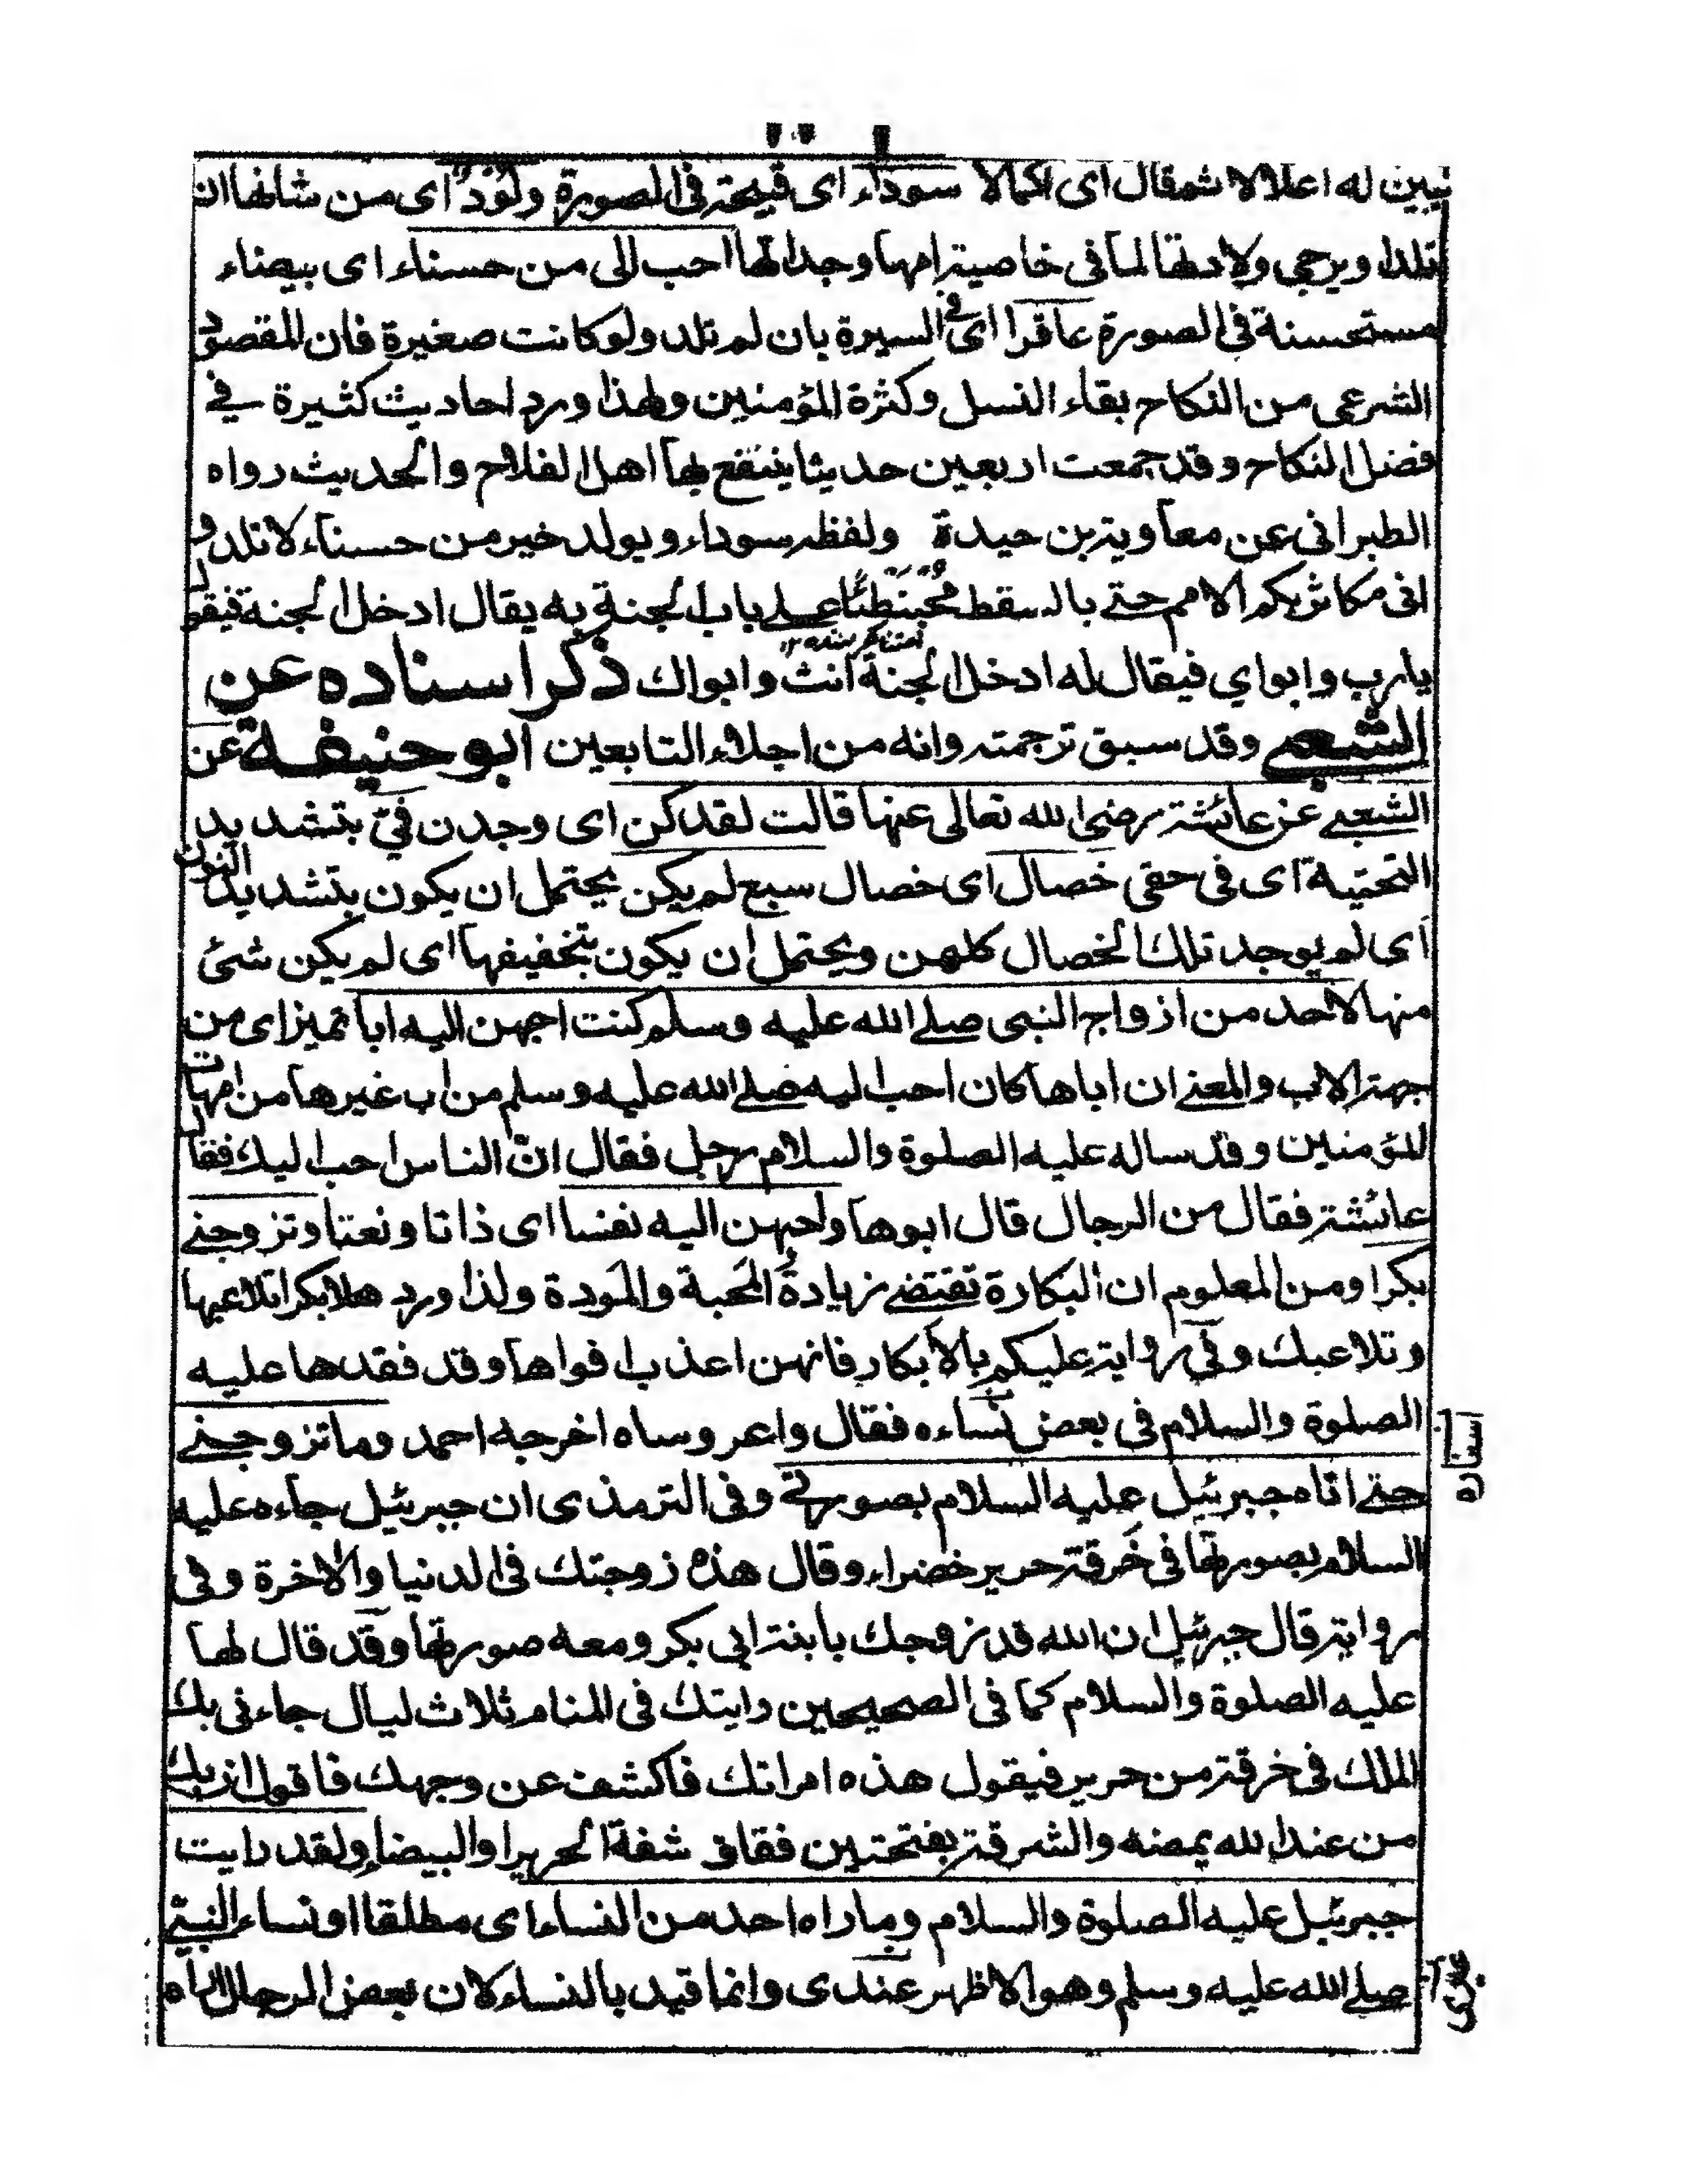 تبين له اعلالا ثم قال اى اكمالا سوداء اى قبيحة فى الصورة ولود اى من شانها ان
تلد او يرجى ولادتها لما فى خاصية امها وجداتها احب الى من حسناء اى بيضاء
مستحسنة فى الصورة عاقرا اى فى السيرة بان لم تلد ولو كانت صغيرة فان المقصود
الشرعى من النكاح بقاء النسل وكثرة المؤمنين ولهذا ورد احاديث كثيرة فى
فضل النكاح وقد جمعت اربعين حديثا ينتفع بها اهل الفلاح والحديث رواه
الطبرانى عن معاوية بن حيدة ولفظه سوداء ويولد خير من حسناء لا تلد و
انى مكاثر بكم الامم حتى بالسقط محبنطئا على باب الجنة به يقال ادخل الجنة فيقول
يارب وابواي فيقال له ادخل الجنة انت وابواك ذكر اسناده عن
الشعبى وقد سبق ترجمته وانه من اجلاء التابعين ابو حنيفة عن
الشعبى عن عائشة رضى الله تعالى عنها قالت لقد كن اى وجدن فيّ بتشديد
التحتية اى فى حقى خصال اى خصال سبع لم يكن يحتمل ان يكون بتشديد النون
اى لم يوجد تلك الخصال كلهن ويحتمل ان يكون بتخفيفها اى لم يكن شئ
منها لاحد من ازواج النبى صلى الله عليه وسلم كنت احبهن اليه ابا تميز اى من
جهة الاب والمعنى ان اباها كان احب اليه صلى الله عليه وسلم من اب غيرها من امهات
المؤمنين وقد ساله عليه الصلوة والسلام رجل فقال انّ الناس احب اليك فقال
عائشة فقال من الرجال قال ابوها واحبهن اليه نفسا اى ذاتا ونعتا وتزوجنى
بكرا ومن المعلوم ان البكارة تقتضى زيادة المحبة والمودة ولذا ورد هلا بكرا تلاعبها
وتلاعبك وفى رواية عليكم بالابكار فانهن اعذب افواها وقد فقدها عليه
الصلوة والسلام فى بعض نساءه فقال واعروساه اخرجه احمد وما تزوجنى
حتى اتاه جبرئيل عليه السلام بصورتى وفى الترمذى ان جبرئيل جاءه عليه
السلام بصورتها فى خرقة حرير خضراء وقال هذه زوجتك فى الدنيا والاخرة وفى
رواية قال جبرئيل ان الله قد زوجك بابنة ابى بكر ومعه صورتها وقد قال لها
عليه الصلوة والسلام كما فى الصحيحين رايتك فى المنام ثلاث ليال جاءنى بك
الملك فى خرقة من حرير فيقول هذه امراتك فاكشف عن وجهك فاقول ان يك
من عند الله يمضه والشرقة بفتحتين فقاف شقة الحرير او البيضاء ولقد رايت
جبرئيل عليه الصلوة والسلام وما راه احد من النساء اى مطلقا او نساء النبى
صلى الله عليه وسلم وهو الاظهر عندى وانما قيد بالنساء لان بعض الرجال